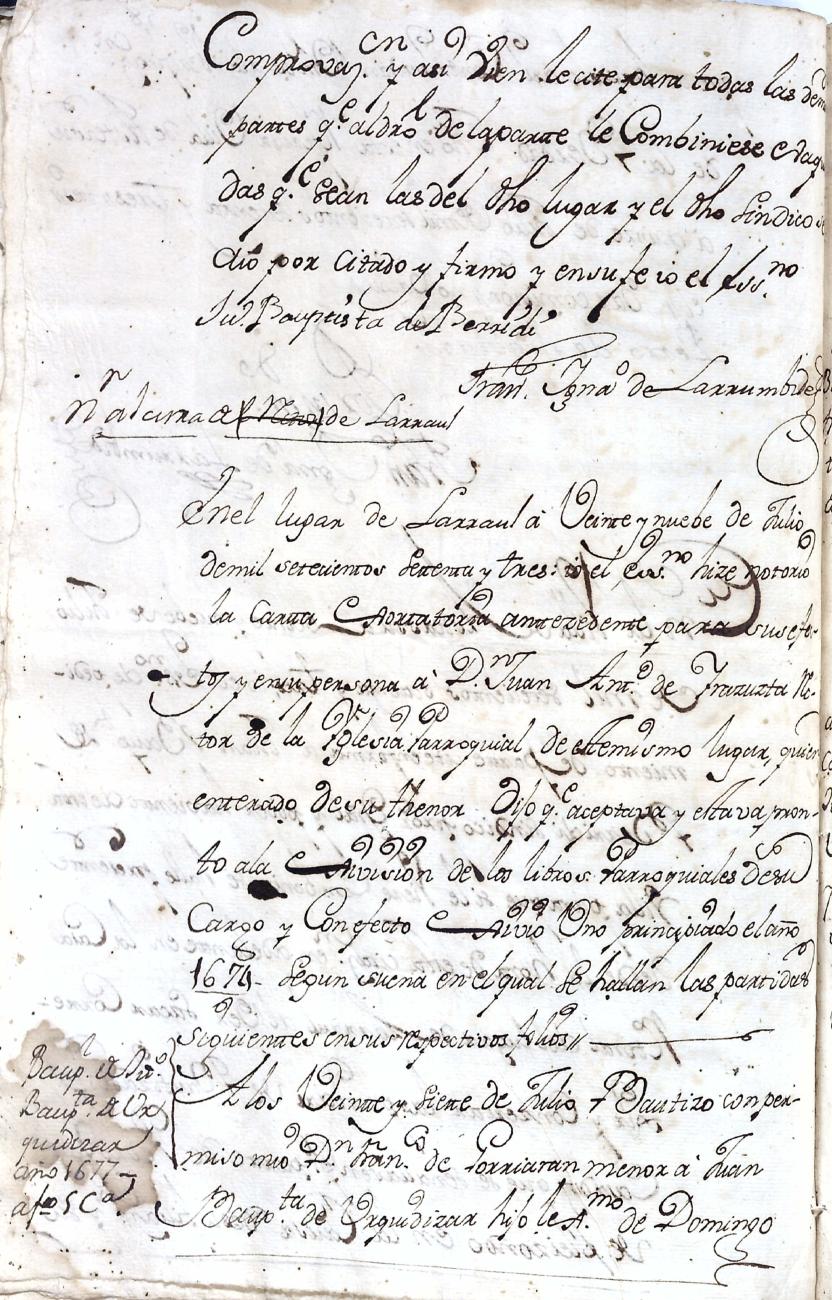 Comprovaz.cn y asi Vien le cite para todas las dem
partes q.e al dro de la parte le Combiniese e
das q.e sean las del dho lugar y el dho sindico se
dió por citado y firmo y en su fe io el ess.no
Ju.n Baptista de Berridi
Fran. Igna.o de Larrumbide
N.n al cura de Larraul
En el lugar de Larraul à Veinte y nuebe de Julio
de mil setecientos setenta y tres: io el ess.no hize notorio
la Carta Exortatoria antezedente para sus efe-
tos y en su persona à D.n Juan Ant.o de Irazuzta Re-
tor de la Iglesia Parroquial de este mismo lugar, quien
enterado de su thenor Dijo q.e aceptava y estava pron-
to a la Exivision de los libros Parroquiales de su
Cargo y Con efecto Exivió Uno principiado el año
1674 - segun suena en el qual se hallan las partidas
siguientes en sus respectivos folios
Baup.l de Ju.o
Baup.ta de Ur
quidizar
año 1677 -
a fo 5
A los Veinte y siete de Julio Bautizo con per-
miso mio D.n Fran.co de Sorriaran menor à Juan
Baup.ta de Urquidizar hijo le x.mo de Domingo